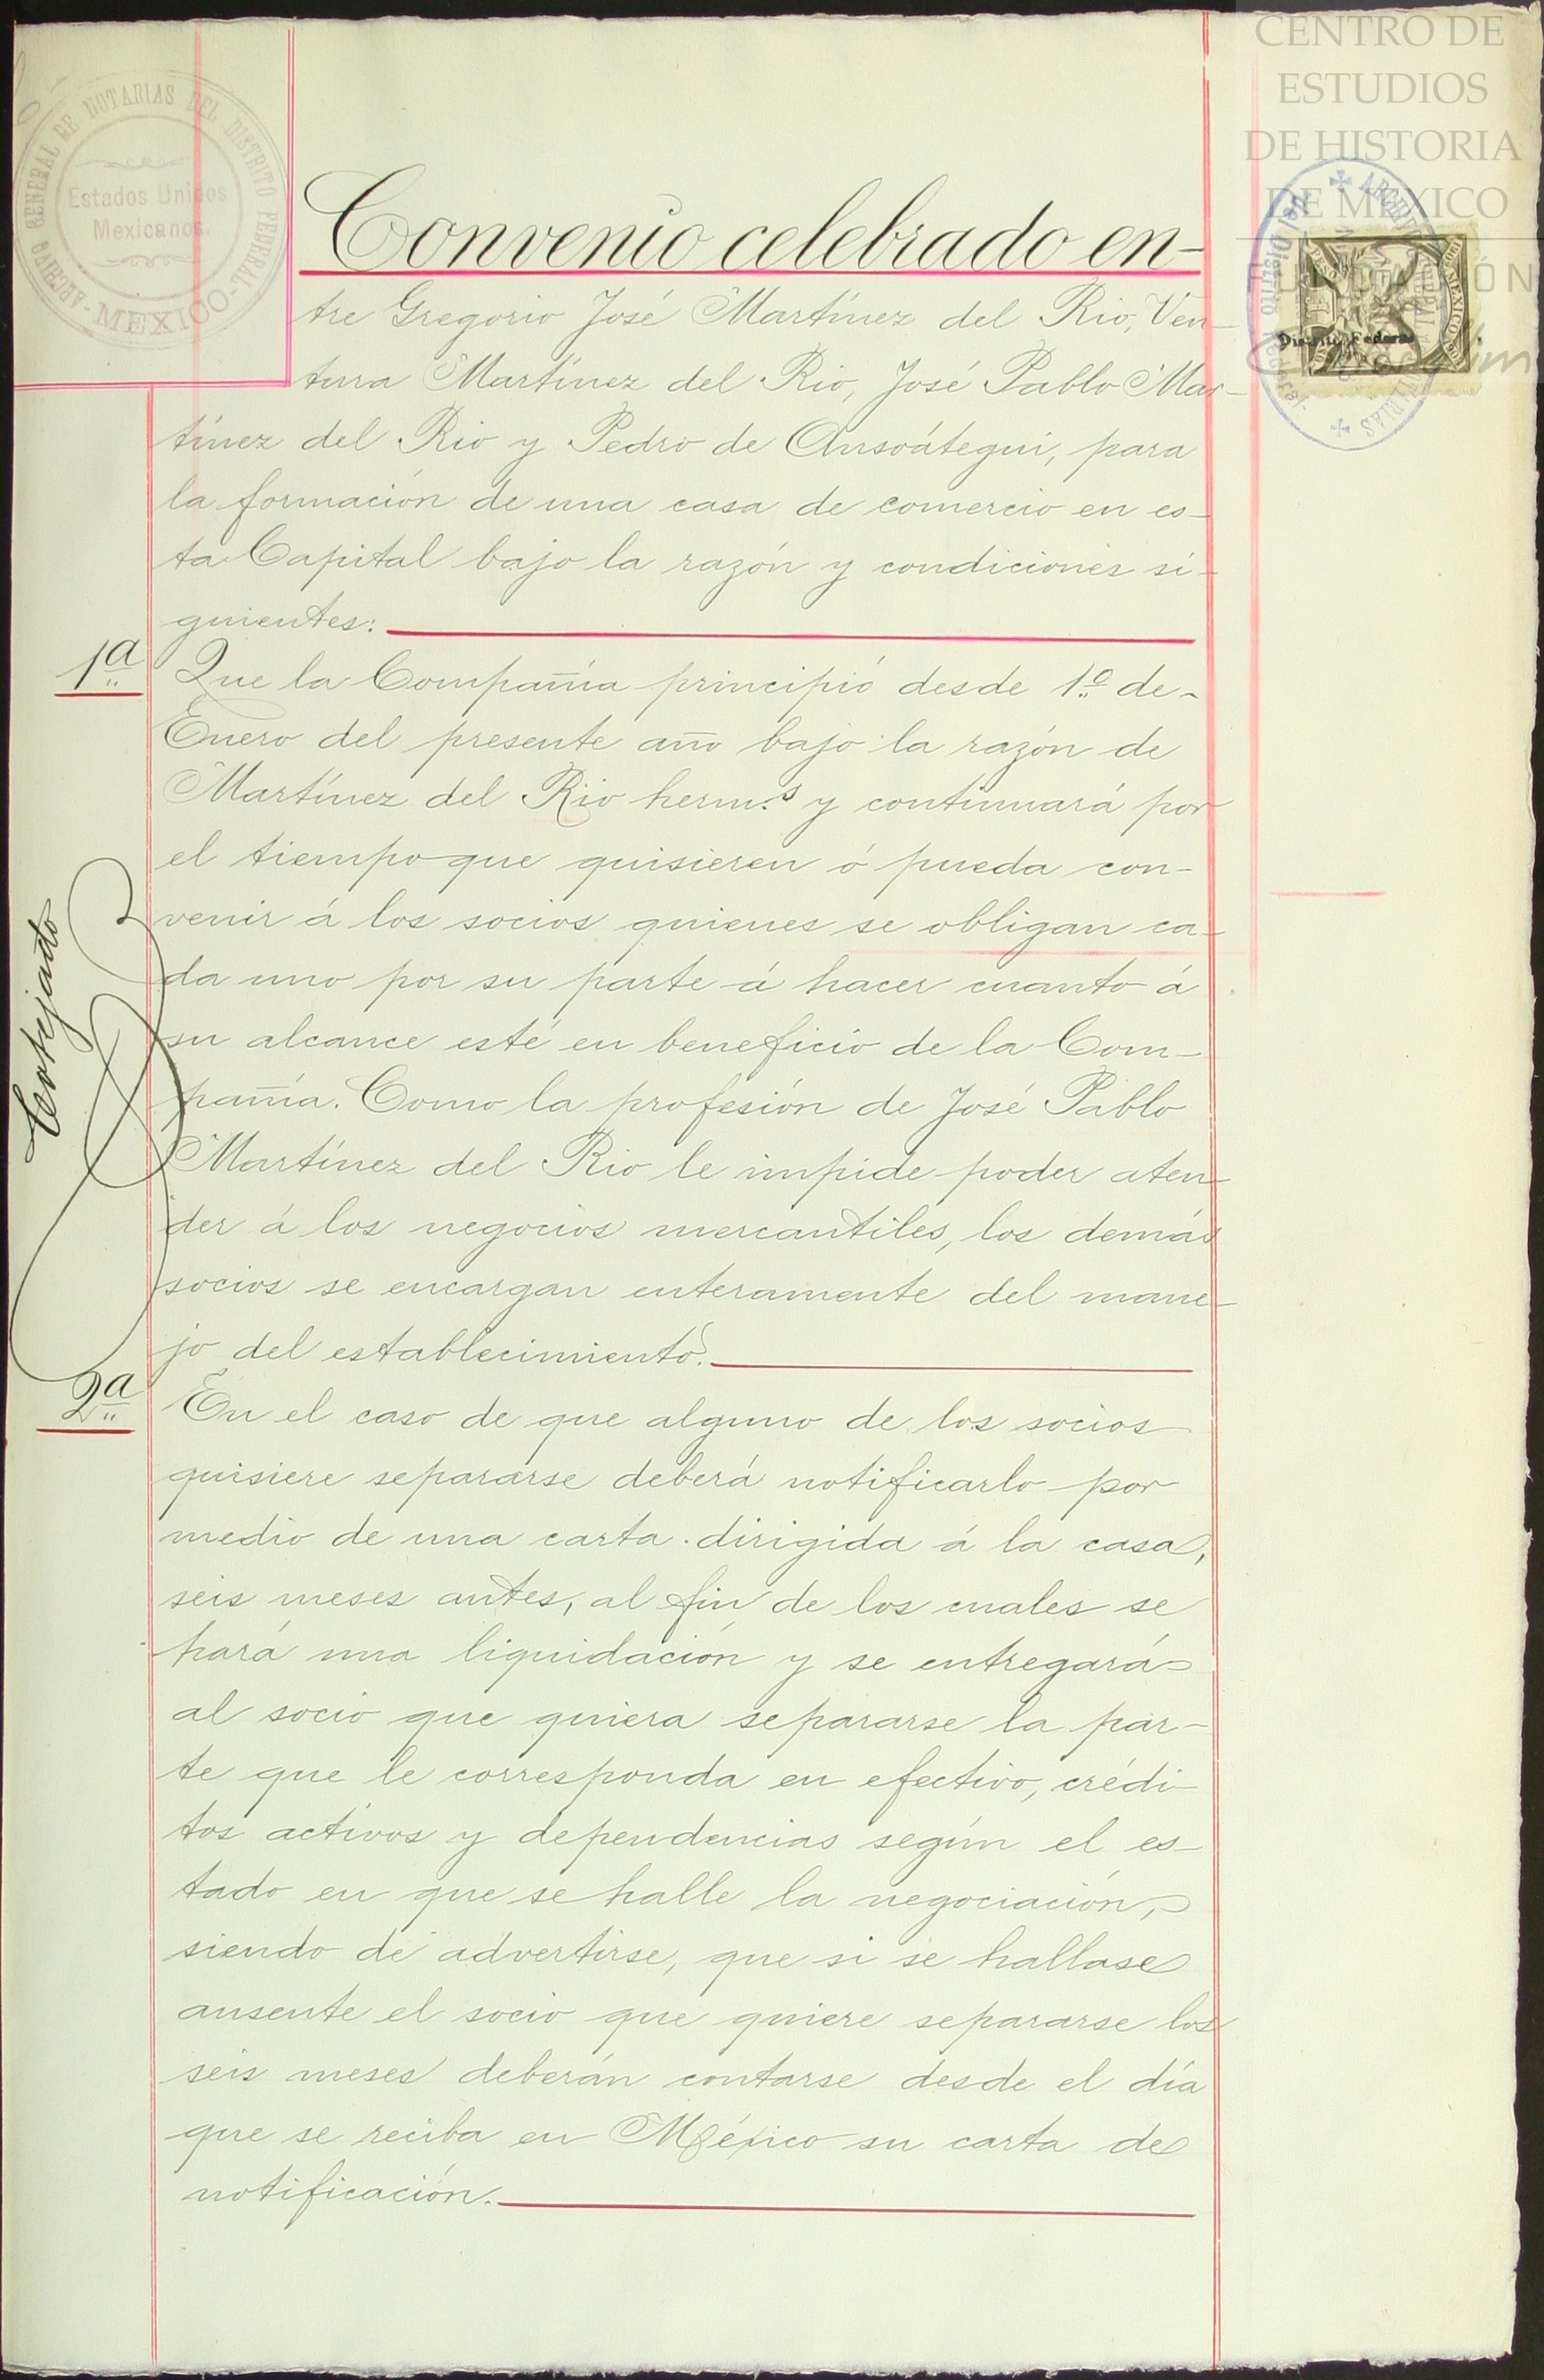 CENTRO DE
ESTUDIOS
DE HISTORIA
DE MEXICO
FUNDACIÓN
ARCHIVO GENERAL DE NOTARIAS DEL DISTRITO FEDERAL - MEXICO -
Estados Unidos
Mexicanos.
Distrito Federal
Convenio celebrado en-
tre Gregorio José Martínez del Rio, Ven-
tura Martínez del Rio, José Pablo Mar-
tínez del Rio y Pedro de Ansoátegui, para
la formación de una casa de comercio en es-
ta Capital bajo la razón y condiciones si-
guientes:
1ª Que la Compañía principió desde 1º de
Enero del presente año bajo la razón de
Martínez del Rio herm.s y continuará por
el tiempo que quisieren ó pueda con-
venir á los socios quienes se obligan ca-
da uno por su parte á hacer cuanto á
su alcance esté en beneficio de la Com-
pañía. Como la profesión de José Pablo
Martínez del Rio le impide poder aten-
der á los negocios mercantiles, los demás
socios se encargan enteramente del mane-
jo del establecimiento.
Cotejado
2ª En el caso de que alguno de los socios
quisiere separarse deberá notificarlo por
medio de una carta dirigida á la casa,
seis meses antes, al fin de los cuales se
hará una liquidación y se entregará
al socio que quiera separarse la par-
te que le corresponda en efectivo, crédi-
tos activos y dependencias según el es-
tado en que se halle la negociación,
siendo de advertirse, que si se hallase
ausente el socio que quiere separarse los
seis meses deberán contarse desde el día
que se reciba en México su carta de
notificación.